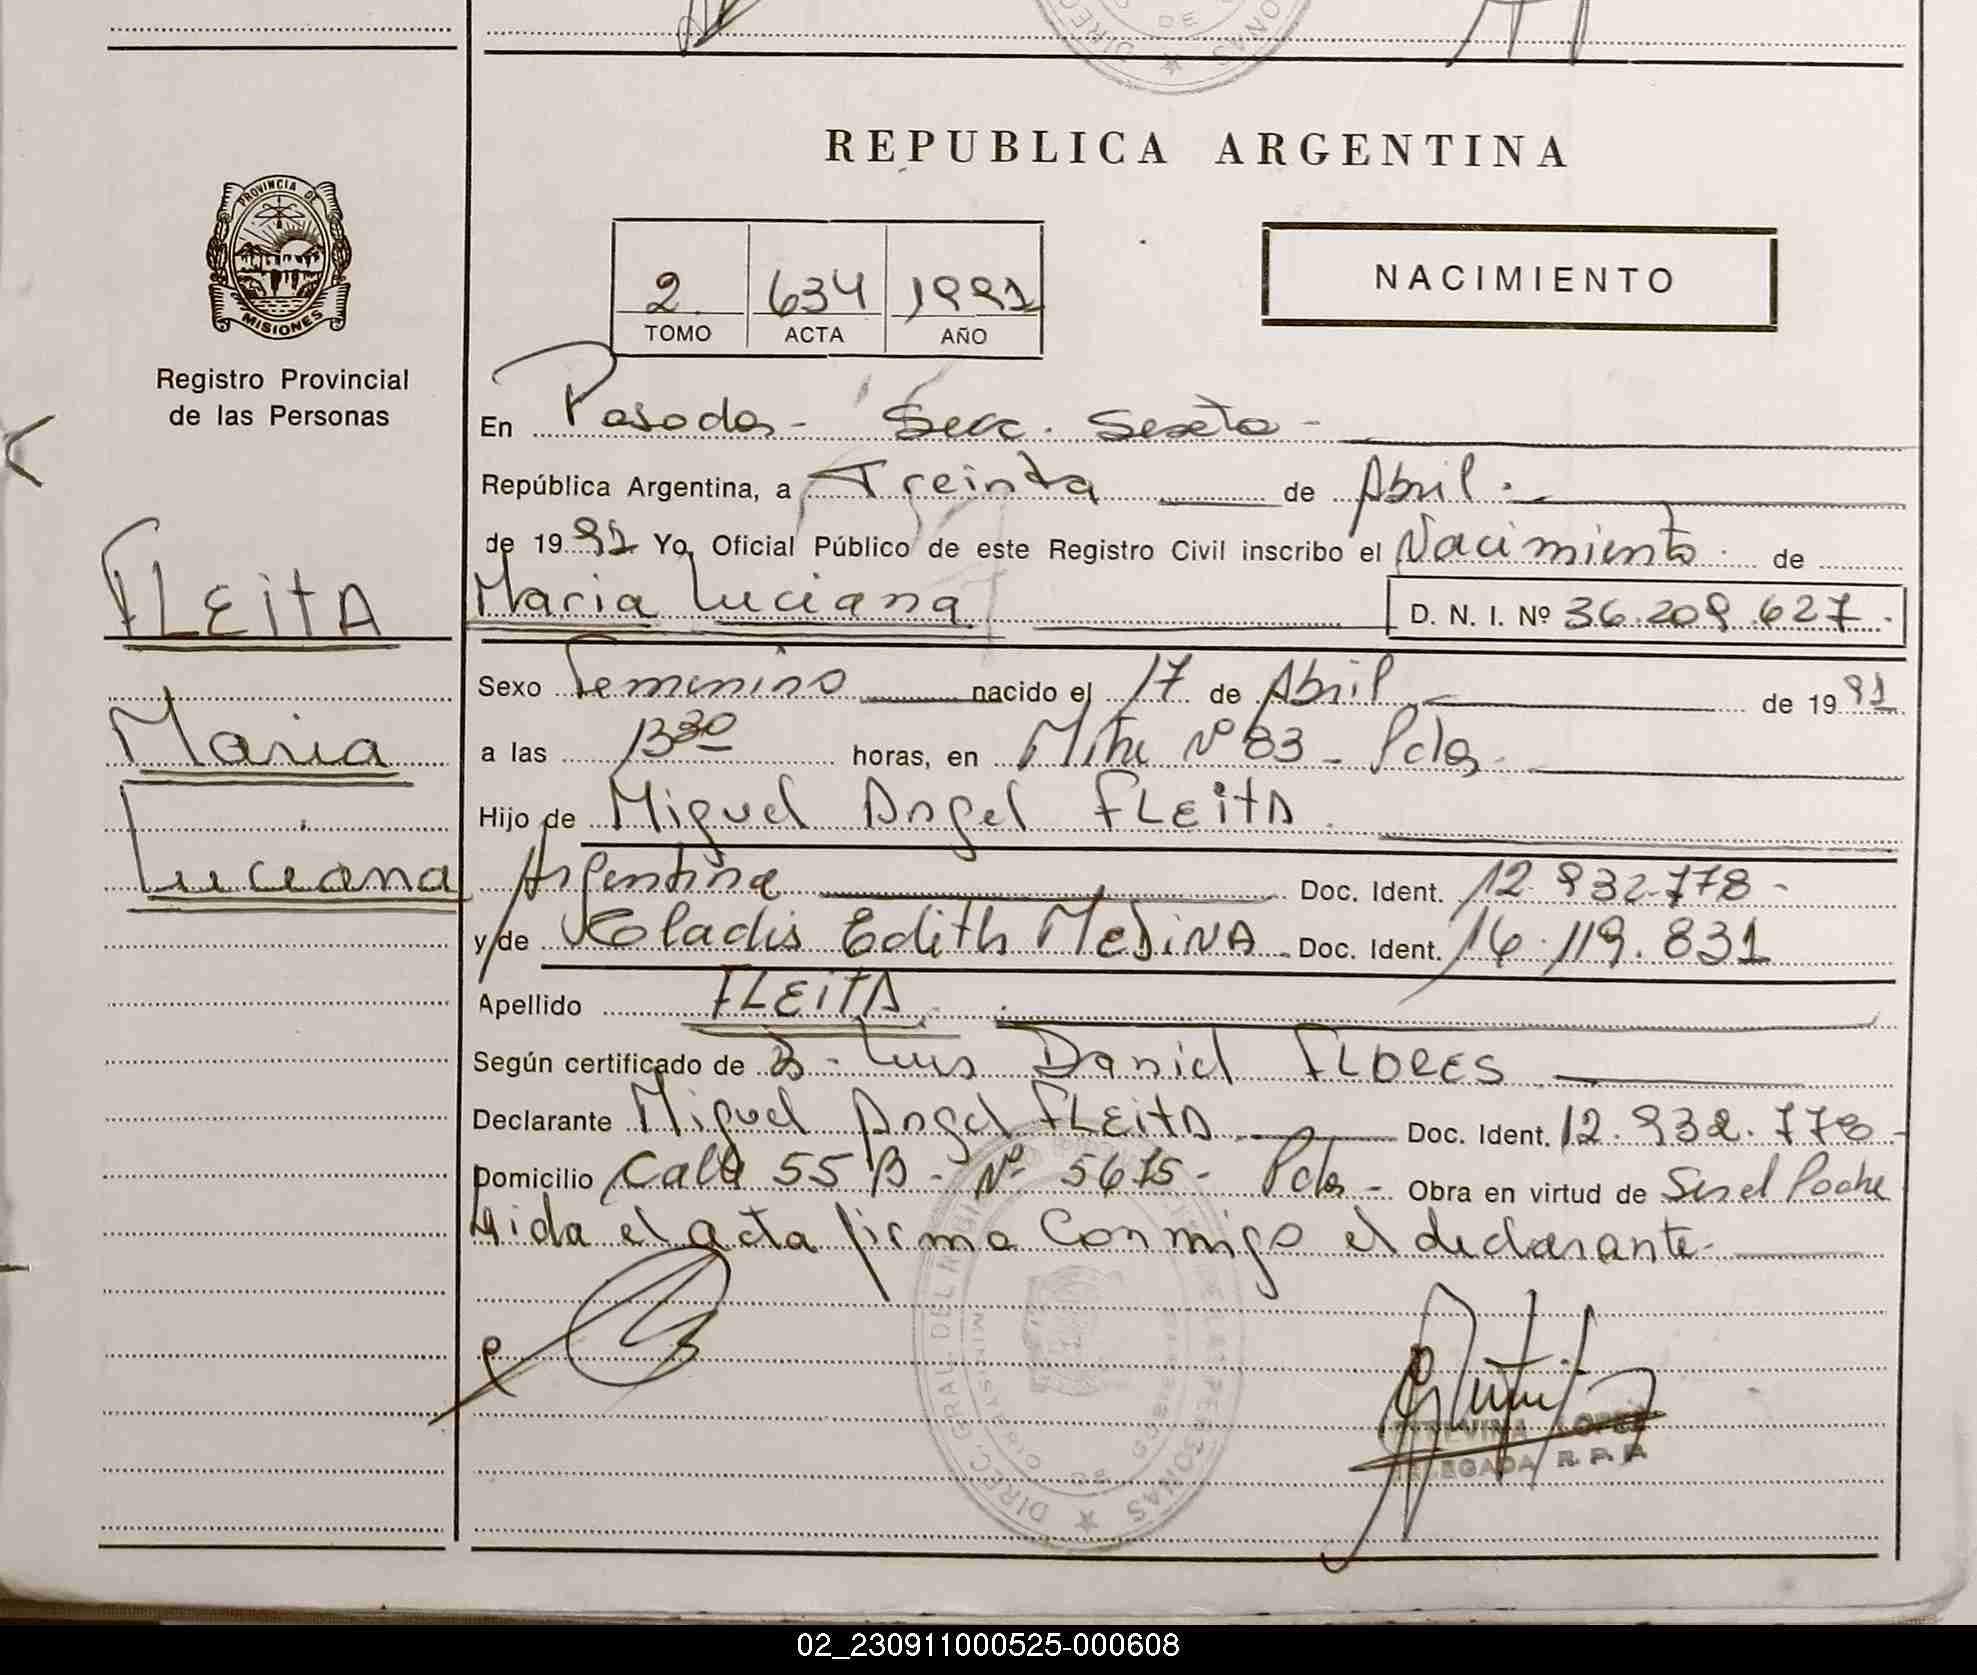 REPUBLICA ARGENTINA
PROVINCIA DE
MISIONES
Registro Provincial
de las Personas
2 634 1991
TOMO ACTA AÑO
NACIMIENTO
FLEitA
Maria
Luciana
En Posadas - Secc. Sexta -
República Argentina, a Treinta de Abril.
de 1991 Yo, Oficial Público de este Registro Civil inscribo el Nacimiento de
Maria Luciana D. N. I. Nº 36.209.627.
Sexo Femenino nacido el 17 de Abril de 1991
a las 13 30 horas, en Mitre Nº 83 - Pdas.
Hijo de Miguel Angel FLEitA
Argentina Doc. Ident. 12.932.778 -
y de Gladis Edith MEDiNA Doc. Ident. 14.119.831
Apellido FLEitA
Según certificado de Luis Daniel FLORES
Declarante Miguel Angel FLEitA Doc. Ident. 12.932.778 -
Domicilio Calle 55 B - Nº 5675 - Pdas - Obra en virtud de
Leida el acta firma conmigo el declarante.
DIREC. GRAL. DEL REGISTRO DE LAS PERSONAS
MINISTERIO DE GOBIERNO
LOPEZ
DELEGADA R. P. P.
02_230911000525-000608